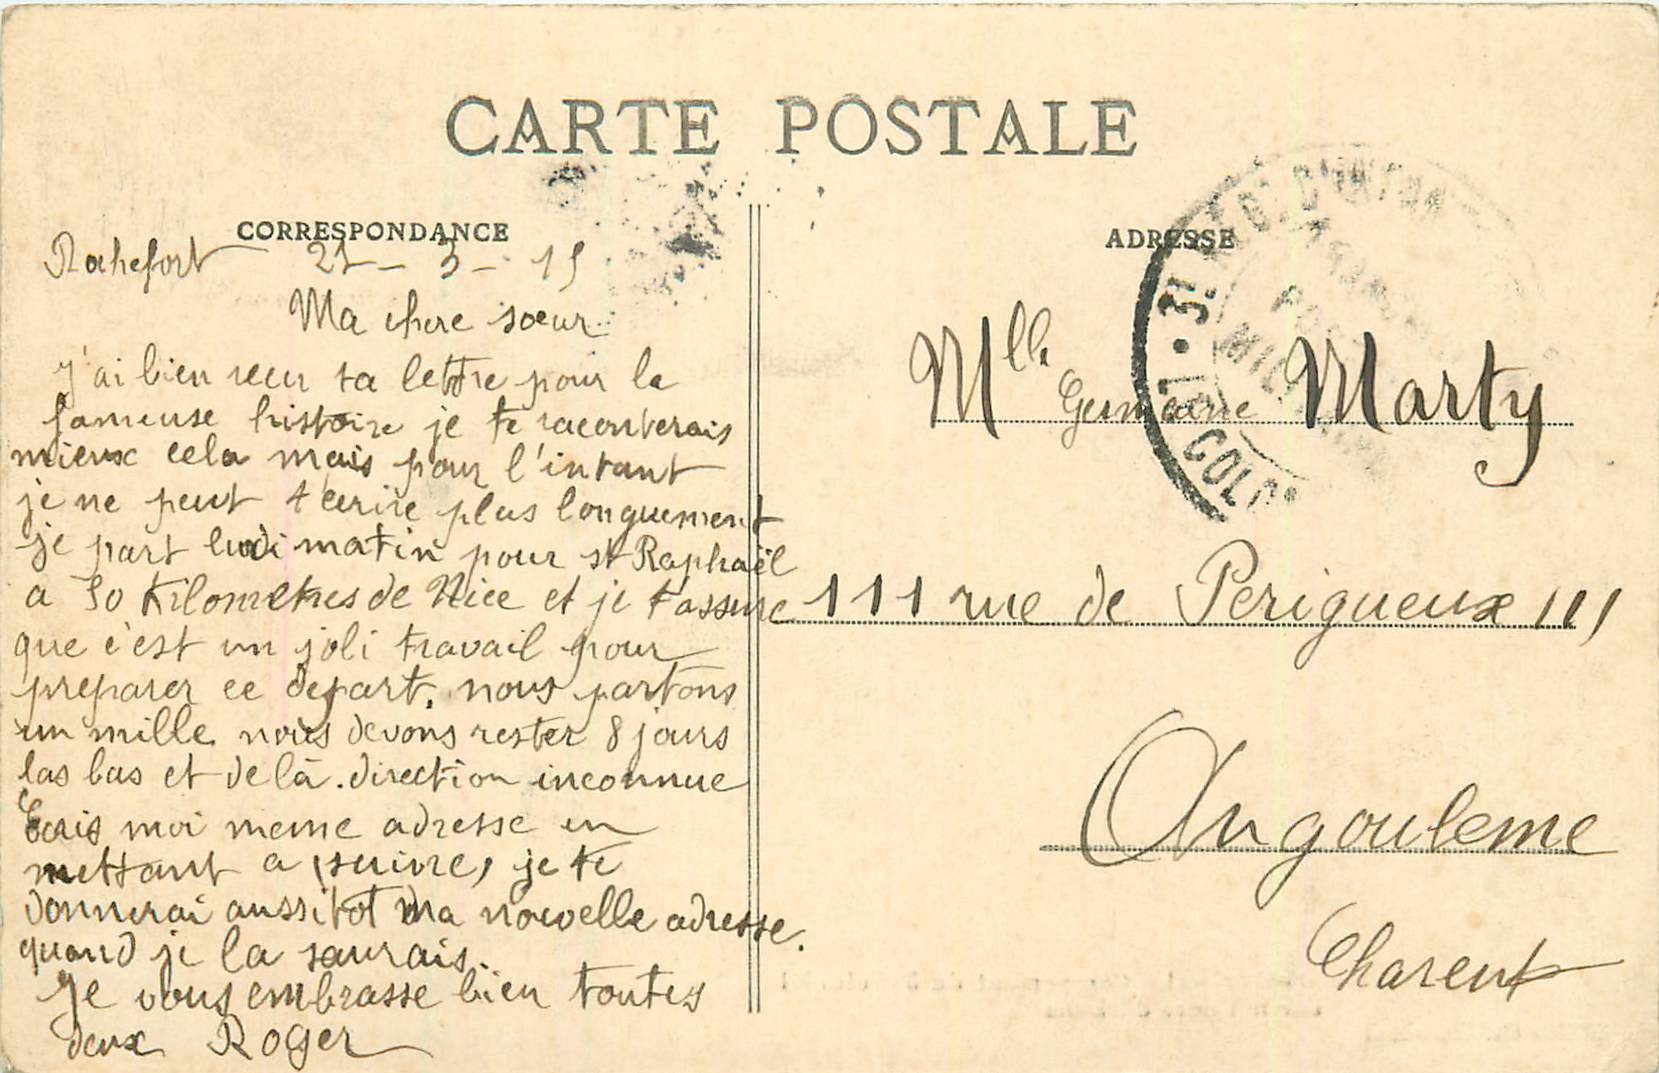 CARTE POSTALE
CORRESPONDANCE
Rochefort 21-3-15
Ma chere soeur
J'ai bien recu ta lettre pour la
fameuse histoire je te raconterais
mieux cela mais pour l'intant
je ne peut t'ecrire plus longuement
je part lundi matin pour st Raphaël
a 50 Kilometres de Nice et je t'assure
que c'est un joli travail pour
preparer ce depart. nous partons
un mille nous devons rester 8 jours
las bas et de là. direction inconnue
Ecris moi meme adresse en
mettant a (suivre) je te
donnerai aussitot ma nouvelle adresse.
quand je la saurais.
Je vous embrasse bien toutes
deux Roger
ADRESSE
Mlle Germaine Marty
111 rue de Perigueux 111
Angouleme
Charent
3e COL